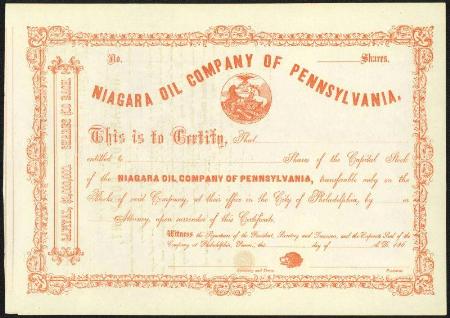 No. Shares.
NIAGARA OIL COMPANY OF PENNSYLVANIA,
This is to Certify, That
entitled to Shares of the Capital Stock
of the NIAGARA OIL COMPANY OF PENNSYLVANIA, transferable only on the
Books of said Company, at their office in the City of Philadelphia, by
Attorney, upon surrender of this Certificate.
Witness the Signatures of the President, Secretary and Treasurer, and the Corporate Seal of the
Company at Philadelphia, Penna., this day of A.D. 186
Secretary and Treas. President.
CAPITAL, SHARES EACH